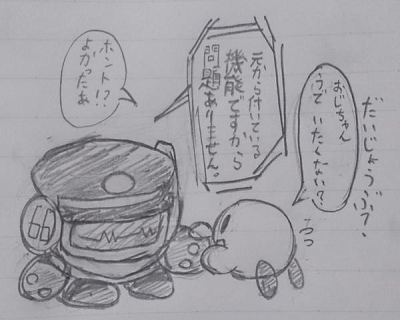 だいじょうぶ?
おじちゃん
うで いたくない?
元から付いている
機能ですから
問題ありません。
ホント!?
よかったぁ
66